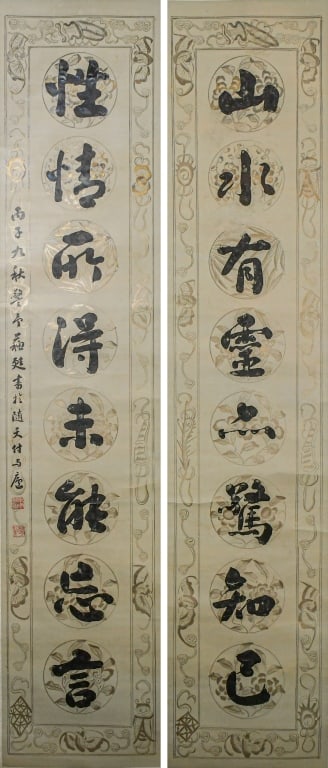 山水有靈亦驚知己
性情所得未能忘言
丙子九秋書於隨天付与廬